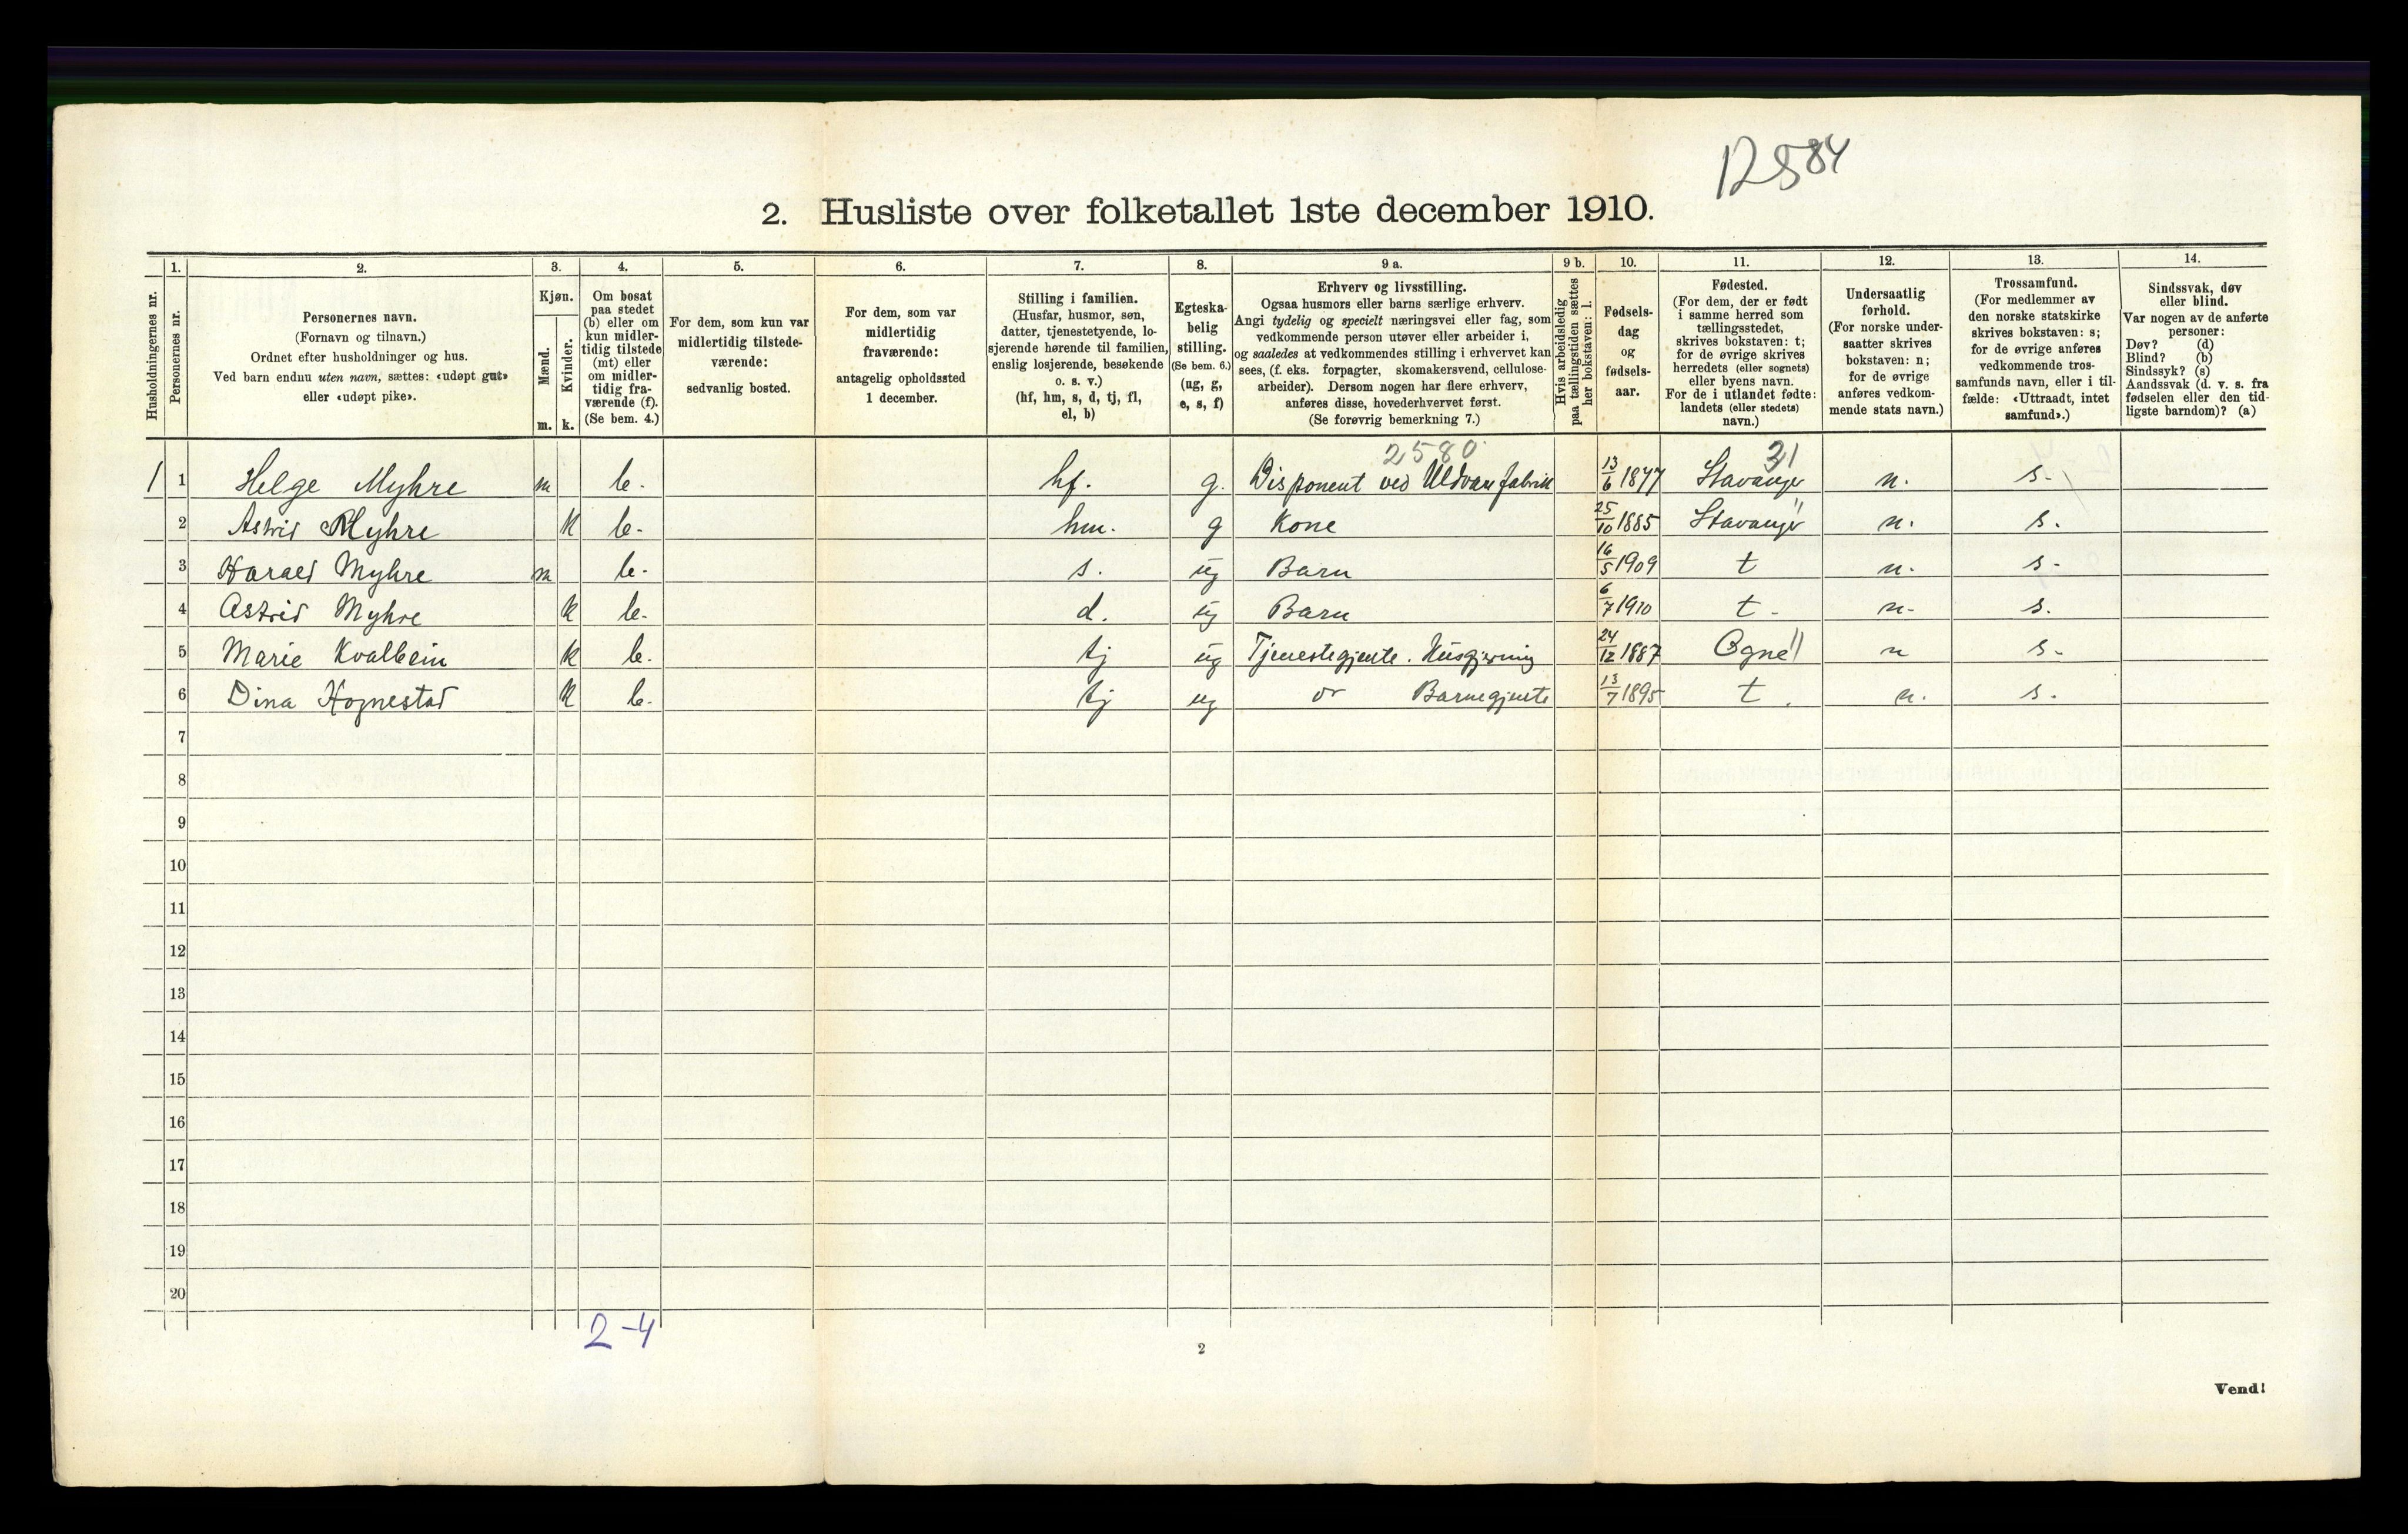 12584
2. Husliste over folketallet 1ste december 1910.
Husholdningernes nr.
1.
Personernes nr.
2.
Personernes navn.
(Fornavn og tilnavn.)
Ordnet efter husholdninger og hus.
Ved barn endnu uten navn, sættes: «udøpt gut»
eller «udøpt pike».
3.
Kjøn.
Mænd.
m.
Kvinder.
k.
4.
Om bosat
paa stedet
(b) eller om
kun midler-
tidig tilstede
(mt) eller
om midler-
tidig fra-
værende (f).
(Se bem. 4.)
5.
For dem, som kun var
midlertidig tilstede-
værende:
sedvanlig bosted.
6.
For dem, som var
midlertidig
fraværende:
antagelig opholdssted
1 december.
7.
Stilling i familien.
(Husfar, husmor, søn,
datter, tjenestetyende, lo-
sjerende hørende til familien,
enslig losjerende, besøkende
o. s. v.)
(hf, hm, s, d, tj, fl,
el, b)
8.
Egteska-
belig
stilling.
(Se bem. 6.)
(ug, g,
e, s, f)
9 a.
Erhverv og livsstilling.
Ogsaa husmors eller barns særlige erhverv.
Angi tydelig og specielt næringsvei eller fag, som
vedkommende person utøver eller arbeider i,
og saaledes at vedkommendes stilling i erhvervet kan
sees, (f. eks. forpagter, skomakersvend, cellulose-
arbeider). Dersom nogen har flere erhverv,
anføres disse, hovederhvervet først.
(Se forøvrig bemerkning 7.)
9 b.
Hvis arbeidsledig
paa tællingstiden sættes
her bokstaven: l.
10.
Fødsels-
dag
og
fødsels-
aar.
11.
Fødested.
(For dem, der er født
i samme herred som
tællingsstedet,
skrives bokstaven: t;
for de øvrige skrives
herredets (eller sognets)
eller byens navn.
For de i utlandet fødte:
landets (eller stedets)
navn.)
12.
Undersaatlig
forhold.
(For norske under-
saatter skrives
bokstaven: n;
for de øvrige
anføres vedkom-
mende stats navn.)
13.
Trossamfund.
(For medlemmer av
den norske statskirke
skrives bokstaven: s;
for de øvrige anføres
vedkommende tros-
samfunds navn, eller i til-
fælde: «Uttraadt, intet
samfund».)
14.
Sindssvak, døv
eller blind.
Var nogen av de anførte
personer:
Døv? (d)
Blind? (b)
Sindssyk? (s)
Aandssvak (d. v. s. fra
fødselen eller den tid-
ligste barndom)? (a)
2580 31
1 1 Helge Myhre m b. hf. g. Disponent ved Uldvarefabrik 13/6 1877 Stavanger n. s.
2 Astrid Myhre k b. hm. g Kone 25/10 1885 Stavanger " n. s.
3 Harald Myhre m b. s. ug Barn 16/5 1909 t n. s.
4 Astrid Myhre k b. d. ug Barn 6/7 1910 t. n. s.
5 Marie Kvalbein k b. tj ug Tjenestegjente. Husgjerning 24/12 1887 Ogne " n s.
6 Dina Hognestad k b. tj ug do Barnegjente 13/7 1895 t. n. s.
7
8
9
10
11
12
13
14
15
16
17
18
19
20
2-4
2
Vend!